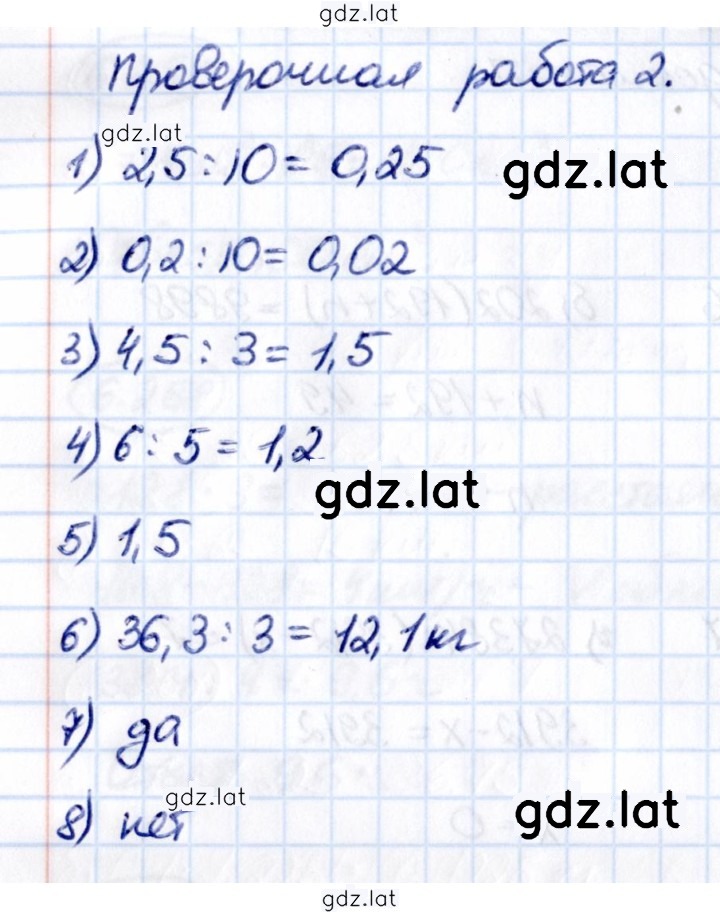 gdz.lat
Проверочная работа 2.
gdz.lat
1) 2,5 : 10 = 0,25
gdz.lat
2) 0,2 : 10 = 0,02
3) 4,5 : 3 = 1,5
4) 6 : 5 = 1,2
gdz.lat
5) 1,5
6) 36,3 : 3 = 12,1 кг
7) да
gdz.lat
gdz.lat
8) нет
gdz.lat